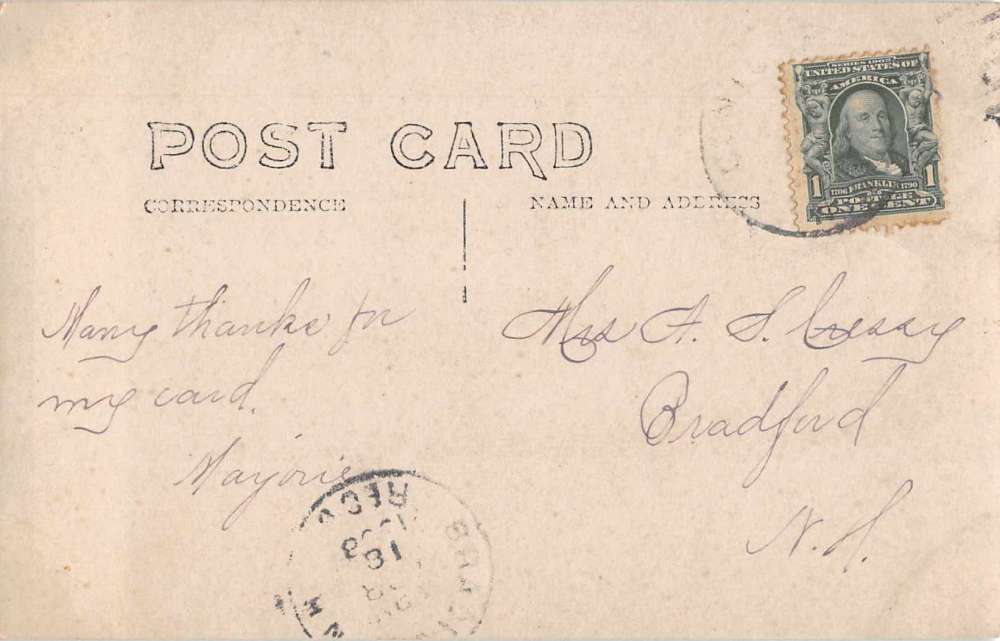 POST CARD
CORRESPONDENCE
NAME AND ADDRESS
SERIES 1902
UNITED STATES OF
AMERICA
1706 FRANKLIN 1790
1 1
POSTAGE
ONE CENT
Many thanks for
my card.
Marjorie
Mrs A. S. Cressy
Bradford
N. H.
REC'D